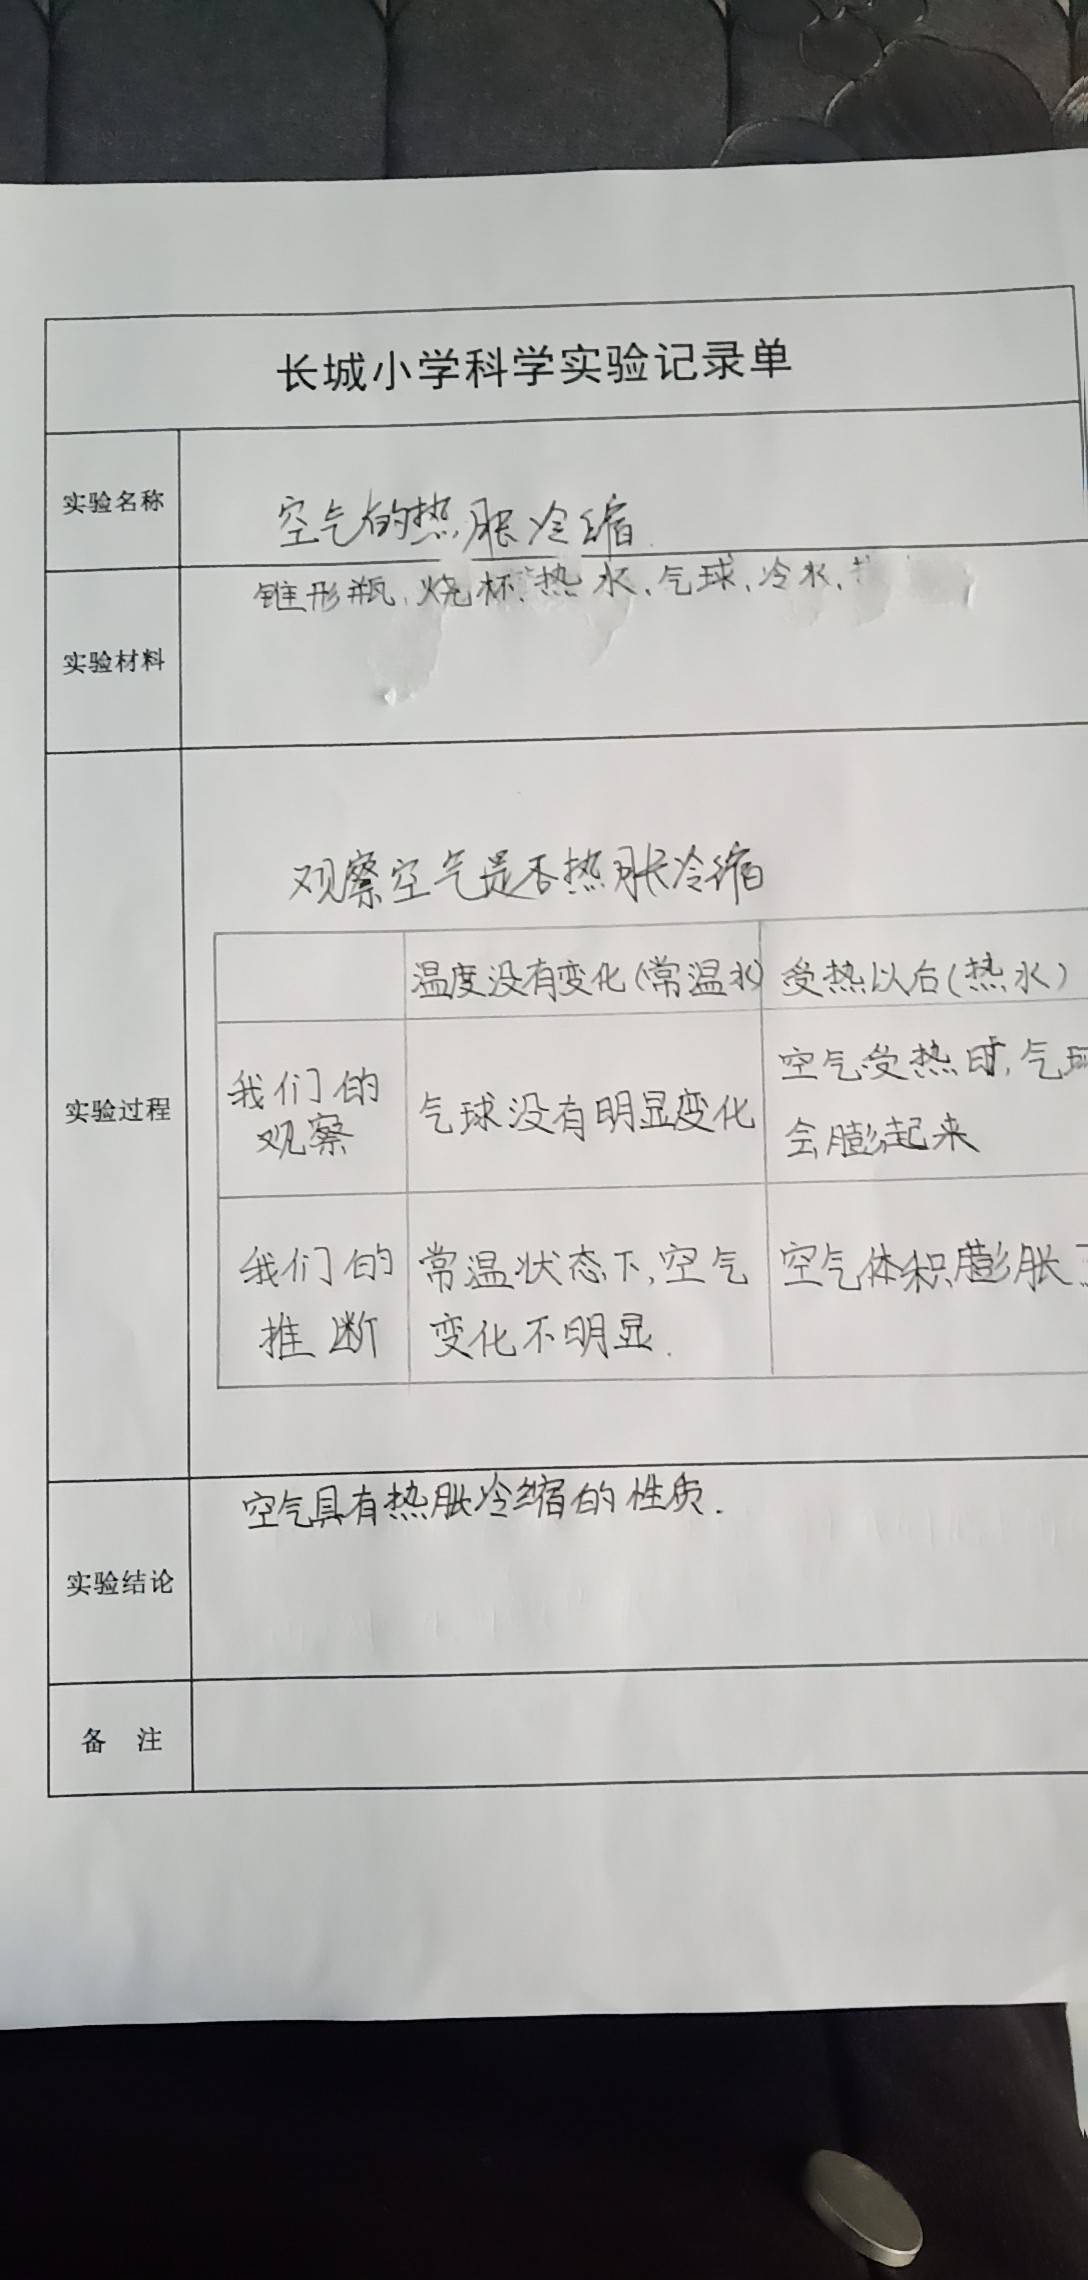 长城小学科学实验记录单
实验名称
空气的热胀冷缩.
实验材料
锥形瓶、烧杯、热水、气球、冷水、
实验过程
观察空气是否热胀冷缩
温度没有变化(常温水) 受热以后(热水)
我们的
观察
气球没有明显变化
空气受热时,气球
会膨起来
我们的
推断
常温状态下,空气
变化不明显.
空气体积膨胀
实验结论
空气具有热胀冷缩的性质.
备 注